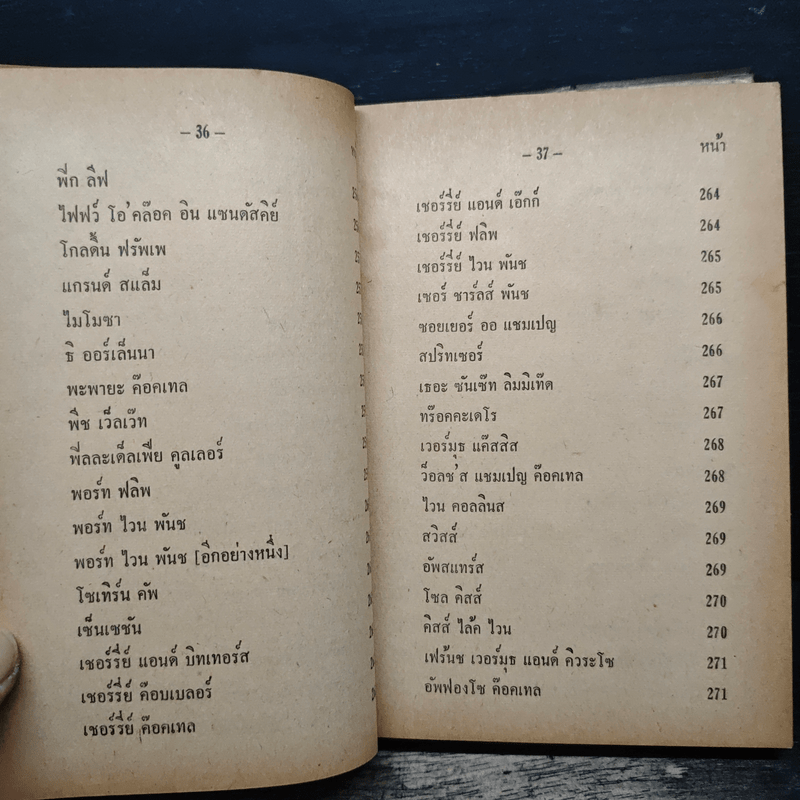 – 36 –
พี่ก ลีฟ
ไฟฟว์ โอ'คล๊อค อิน แซนดัสคิย์
โกลดิ้น ฟรัพเพ
แกรนด์ สแล็ม
ไมโมซา
ธิ ออร์เล็นนา
พะพายะ ค๊อคเทล
พีช เว็ลเว๊ท
พี่ลละเด็ลเฟีย คูลเลอร์
พอร์ท ฟลิพ
พอร์ท ไวน พันช
พอร์ท ไวน พันช [อีกอย่างหนึ่ง]
โซเทิร์น คัพ
เซ็นเซชัน
เชอร์รี่ย์ แอนด์ บิทเทอร์ส
เชอร์รี่ย์ ค๊อบเบลอร์
เชอร์รี่ย์ ค๊อคเทล
– 37 –
หน้า
เชอร์รี่ย์ แอนด์ เอ๊กก์ 264
เชอร์รี่ย์ ฟลิพ 264
เชอร์รี่ย์ ไวน พันช 265
เซอร์ ชาร์ลส์ พันช 265
ซอยเยอร์ ออ แชมเปญ 266
สปริทเซอร์ 266
เธอะ ซันเซ๊ท ลิมมิเท๊ด 267
ทร๊อคคะเดโร 267
เวอร์มุธ แค๊สสิส 268
ว็อลช'ส แชมเปญ ค๊อคเทล 268
ไวน คอลลินส 269
สวิสส์ 269
อัพสแทร์ส 269
โซล คิสส์ 270
คิสส์ ไล้ค ไวน 270
เฟร้นช เวอร์มุธ แอนด์ คิวระโซ 271
อัพฟองโซ ค๊อคเทล 271